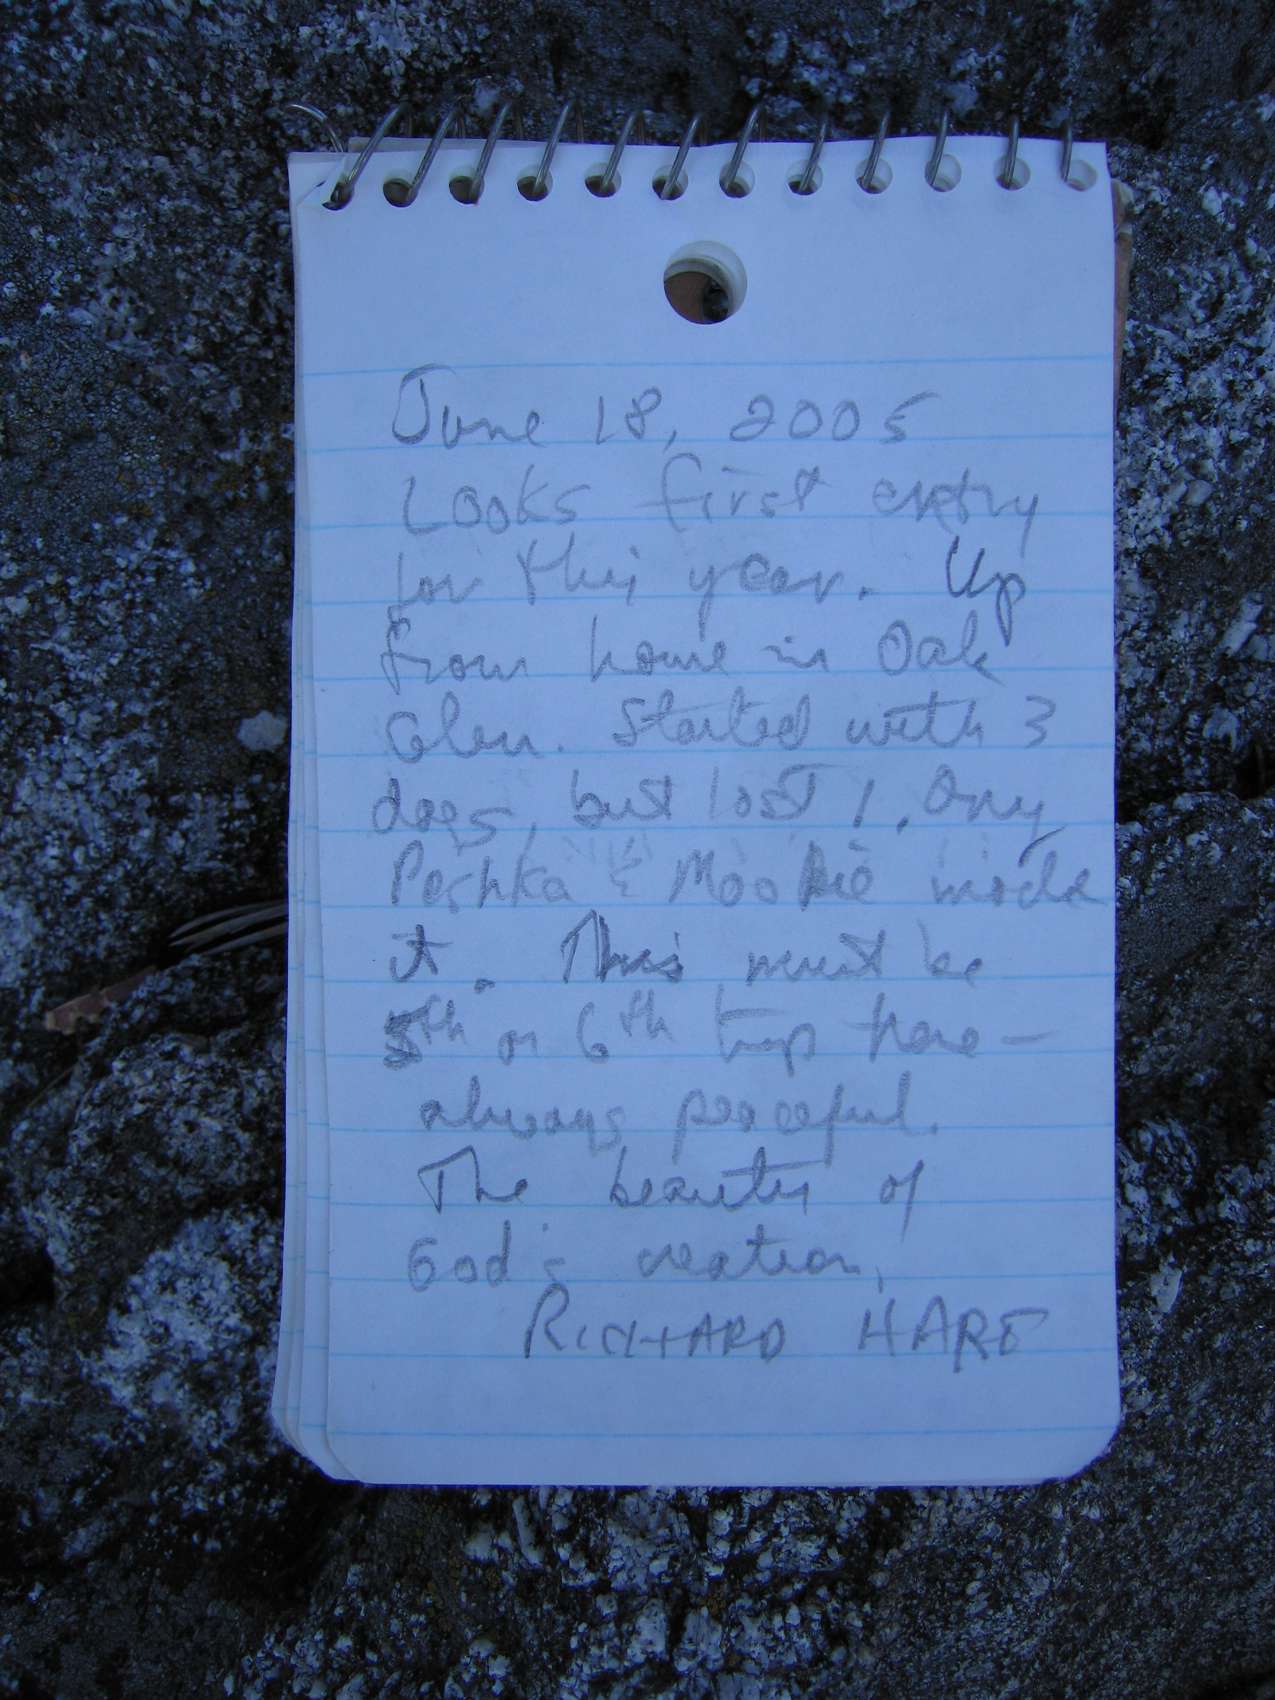 June 18, 2005
Looks first entry
for this year. Up
from home in Oak
Glen. Started with 3
dogs, but lost 1. Ony
Peshka & Mookie made
it. This must be
5th or 6th trip here –
always peaceful.
The beauty of
God's creation,
RICHARD HART